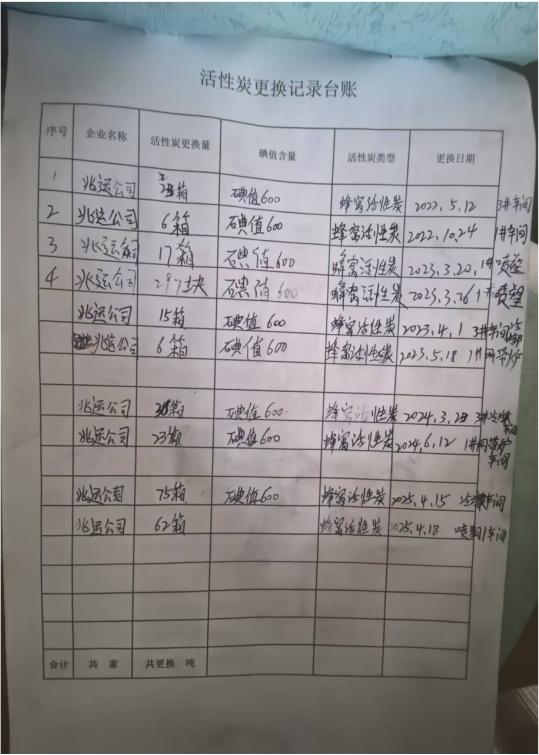 活性炭更换记录台账
序号 企业名称 活性炭更换量 碘值含量 活性炭类型 更换日期
1 兆运公司 箱 碘值600 蜂窝活性炭 2022.5.12 3#车间
2 兆运公司 6箱 碘值600 蜂窝活性炭 2022.10.24 1#车间
3 兆运公司 17箱 碘值600 蜂窝活性炭 2023.3.20 1#喷塑
4 兆运公司 297块 碘值600 蜂窝活性炭 2023.3.26 1#喷塑
兆运公司 15箱 碘值600 蜂窝活性炭 2023.4.1 3#车间
兆运公司 6箱 碘值600 蜂窝活性炭 2023.5.18 1#
兆运公司 箱 碘值600 蜂窝活性炭 2024.3.28 3# 车间
兆运公司 23箱 碘值600 蜂窝活性炭 2024.6.12 1# 车间
兆运公司 75箱 碘值600 蜂窝活性炭 2025.4.15 车间
兆运公司 62箱 蜂窝活性炭 2025.4.18 1车间
合计 共 家 共更换 吨